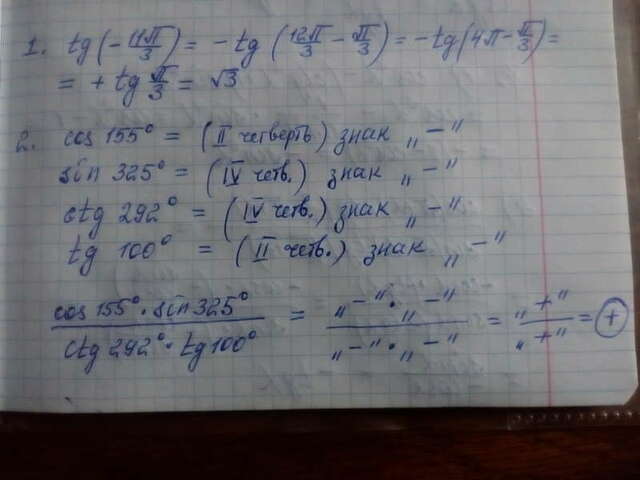 1. tg(-11π/3) = -tg(12π/3 - π/3) = -tg(4π - π/3) =
= + tg π/3 = √3
2. cos 155° = (II четверть) знак „-"
sin 325° = (IV четв.) знак „-"
ctg 292° = (IV четв.) знак „-"
tg 100° = (II четв.) знак „-"
cos 155° · sin 325° / ctg 292° · tg 100° = „-" · „-" / „-" · „-" = „+" / „+" = +